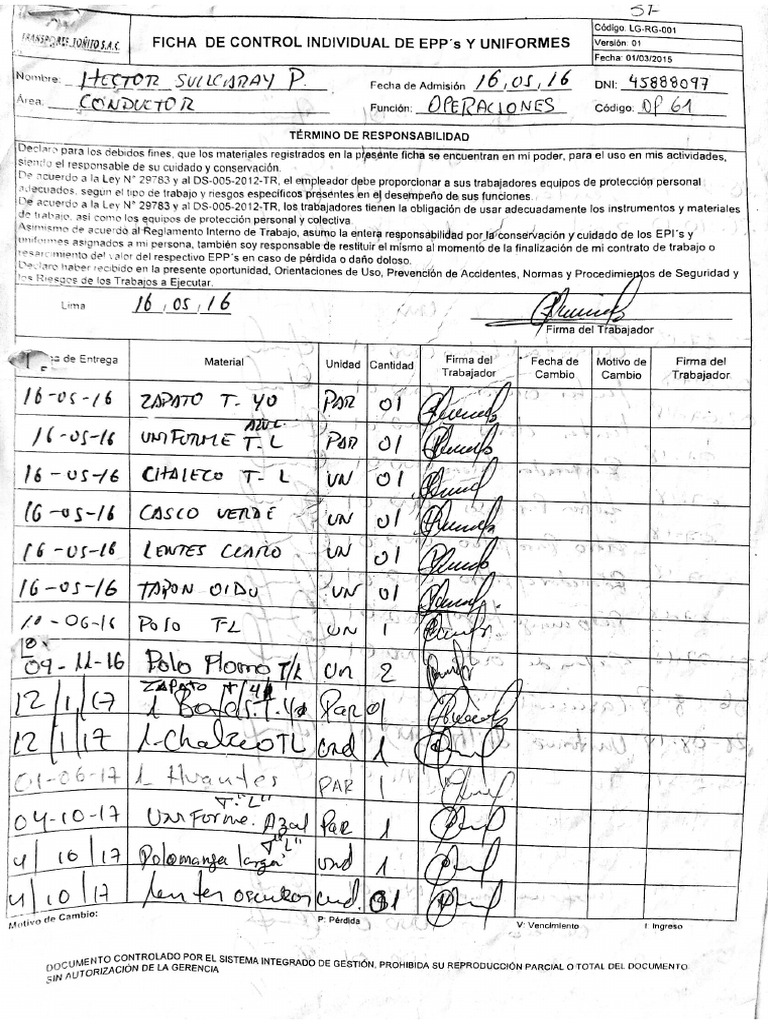 57
TRANSPORTES TOÑITO S.A.C.
FICHA DE CONTROL INDIVIDUAL DE EPP´s Y UNIFORMES
Código: LG-RG-001
Versión: 01
Fecha: 01/03/2015
Nombre: HECTOR SULLCARAY P. Fecha de Admisión 16,05,16 DNI: 45888097
Área: CONDUCTOR Función: OPERACIONES Código: OP 61
TÉRMINO DE RESPONSABILIDAD
Declaro para los debidos fines, que los materiales registrados en la presente ficha se encuentran en mi poder, para el uso en mis actividades,
siendo el responsable de su cuidado y conservación.
De acuerdo a la Ley N° 29783 y al DS-005-2012-TR, el empleador debe proporcionar a sus trabajadores equipos de protección personal
adecuados, segun el tipo de trabajo y riesgos específicos presentes en el desempeño de sus funciones.
De acuerdo a la Ley N° 29783 y al DS-005-2012-TR, los trabajadores tienen la obligación de usar adecuadamente los instrumentos y materiales
de trabajo, así como los equipos de protección personal y colectiva.
Asimismo de acuerdo al Reglamento Interno de Trabajo, asumo la entera responsabilidad por la conservación y cuidado de los EPI´s y
uniformes asignados a mi persona, también soy responsable de restituir el mismo al momento de la finalización de mi contrato de trabajo o
resarcimiento del valor del respectivo EPP´s en caso de pérdida o daño doloso.
Declaro haber recibido en la presente oportunidad, Orientaciones de Uso, Prevención de Accidentes, Normas y Procedimientos de Seguridad y
los Riesgos de los Trabajos a Ejecutar.
Lima 16,05,16
Firma del Trabajador
de Entrega Material Unidad Cantidad Firma del Trabajador Fecha de Cambio Motivo de Cambio Firma del Trabajador
16-05-16 ZAPATO T- 40 PAR 01
16-05-16 UNIFORME AZUL T-L PAR 01
16-05-16 CHALECO T-L UN 01
16-05-16 CASCO VERDE UN 01
16-05-16 LENTES CLARO UN 01
16-05-16 TAPON OIDO UN 01
10-06-16 POLO T-L UN 1
09-11-16 Polo Plomo T/L Un 2
12/1/17 ZAPATO T/41 Par 01
12/1/17 1-Chaleco TL Und 1
01-06-17 1 Huantes PAR 1
04-10-17 UNIForme. Azul T."L" Par 1
4/10/17 Polo manga larga T"L" Und 1
4/10/17 Lentes oscuros und. 01
Motivo de Cambio: P: Pérdida V: Vencimiento I: Ingreso
DOCUMENTO CONTROLADO POR EL SISTEMA INTEGRADO DE GESTIÓN, PROHIBIDA SU REPRODUCCIÓN PARCIAL O TOTAL DEL DOCUMENTO
SIN AUTORIZACIÓN DE LA GERENCIA